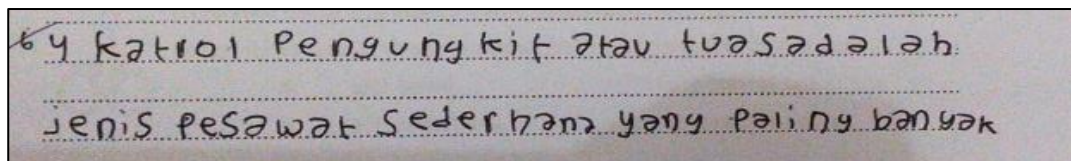 64 katrol Pengungkit atau tuasadalah
jenis Pesawat Sederhana yang Paling banyak